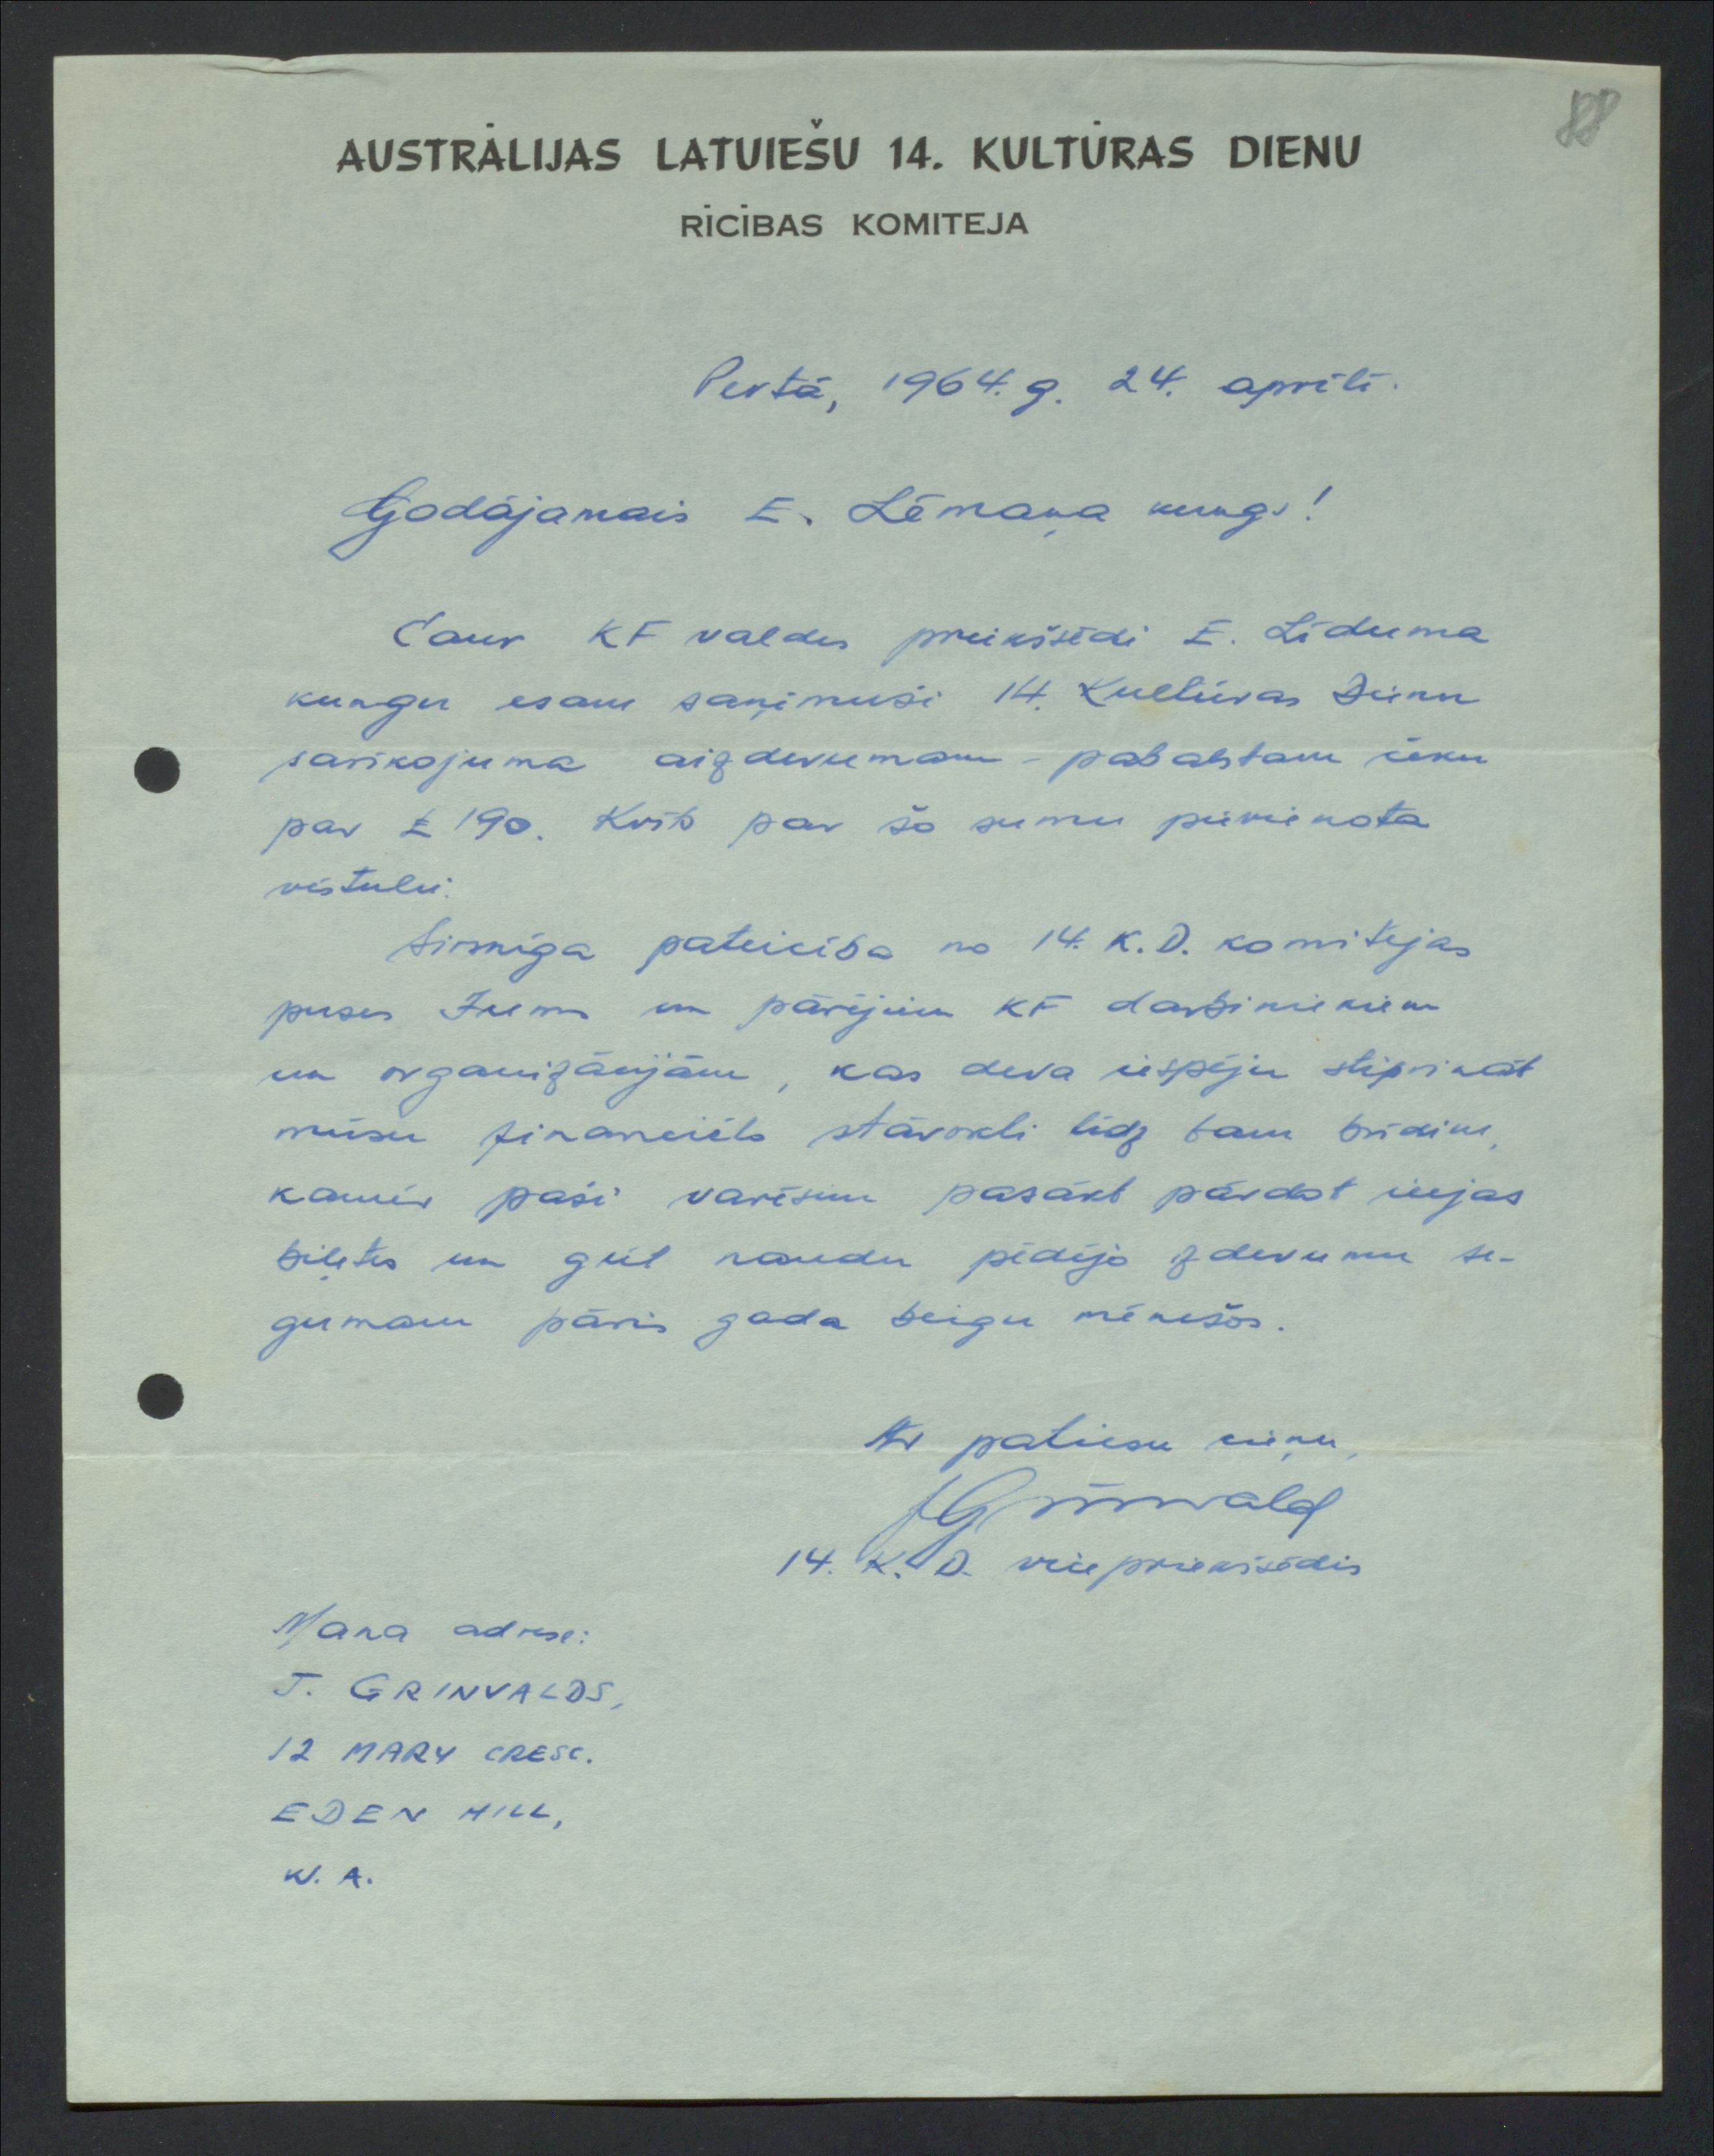 88
AUSTRĀLIJAS LATVIEŠU 14. KULTŪRAS DIENU
RĪCĪBAS KOMITEJA
Pertā, 1964. g. 24. aprīlī.
Godājamais E. Lēmaņa kungs!
Caur KF valdes priekšsēdi E. Līduma
kungu esam saņēmuši 14. Kultūras Dienu
sarīkojuma aizdevumam - pabalstam čeku
par £ 190. Kvīts par šo sumu pievienota
vēstulei.
Sirsnīga pateicība no 14. K.D. komitejas
puses Jums un pārējiem KF darbiniekiem
un organizācijām, kas deva iespēju stiprināt
mūsu financiēlo stāvokli līdz tam brīdim,
kamēr paši varēsim pasākt pārdot ieejas
biļetes un gūt naudu pēdējo izdevumu se-
gumam pāris gada beigu mēnešos.
Ar patiesu cieņu,
JGrīnvald
14. K. D. vicepriekšsēdis
Mana adrese:
J. GRINVALDS,
12 MARY CRESC.
EDEN HILL,
W. A.